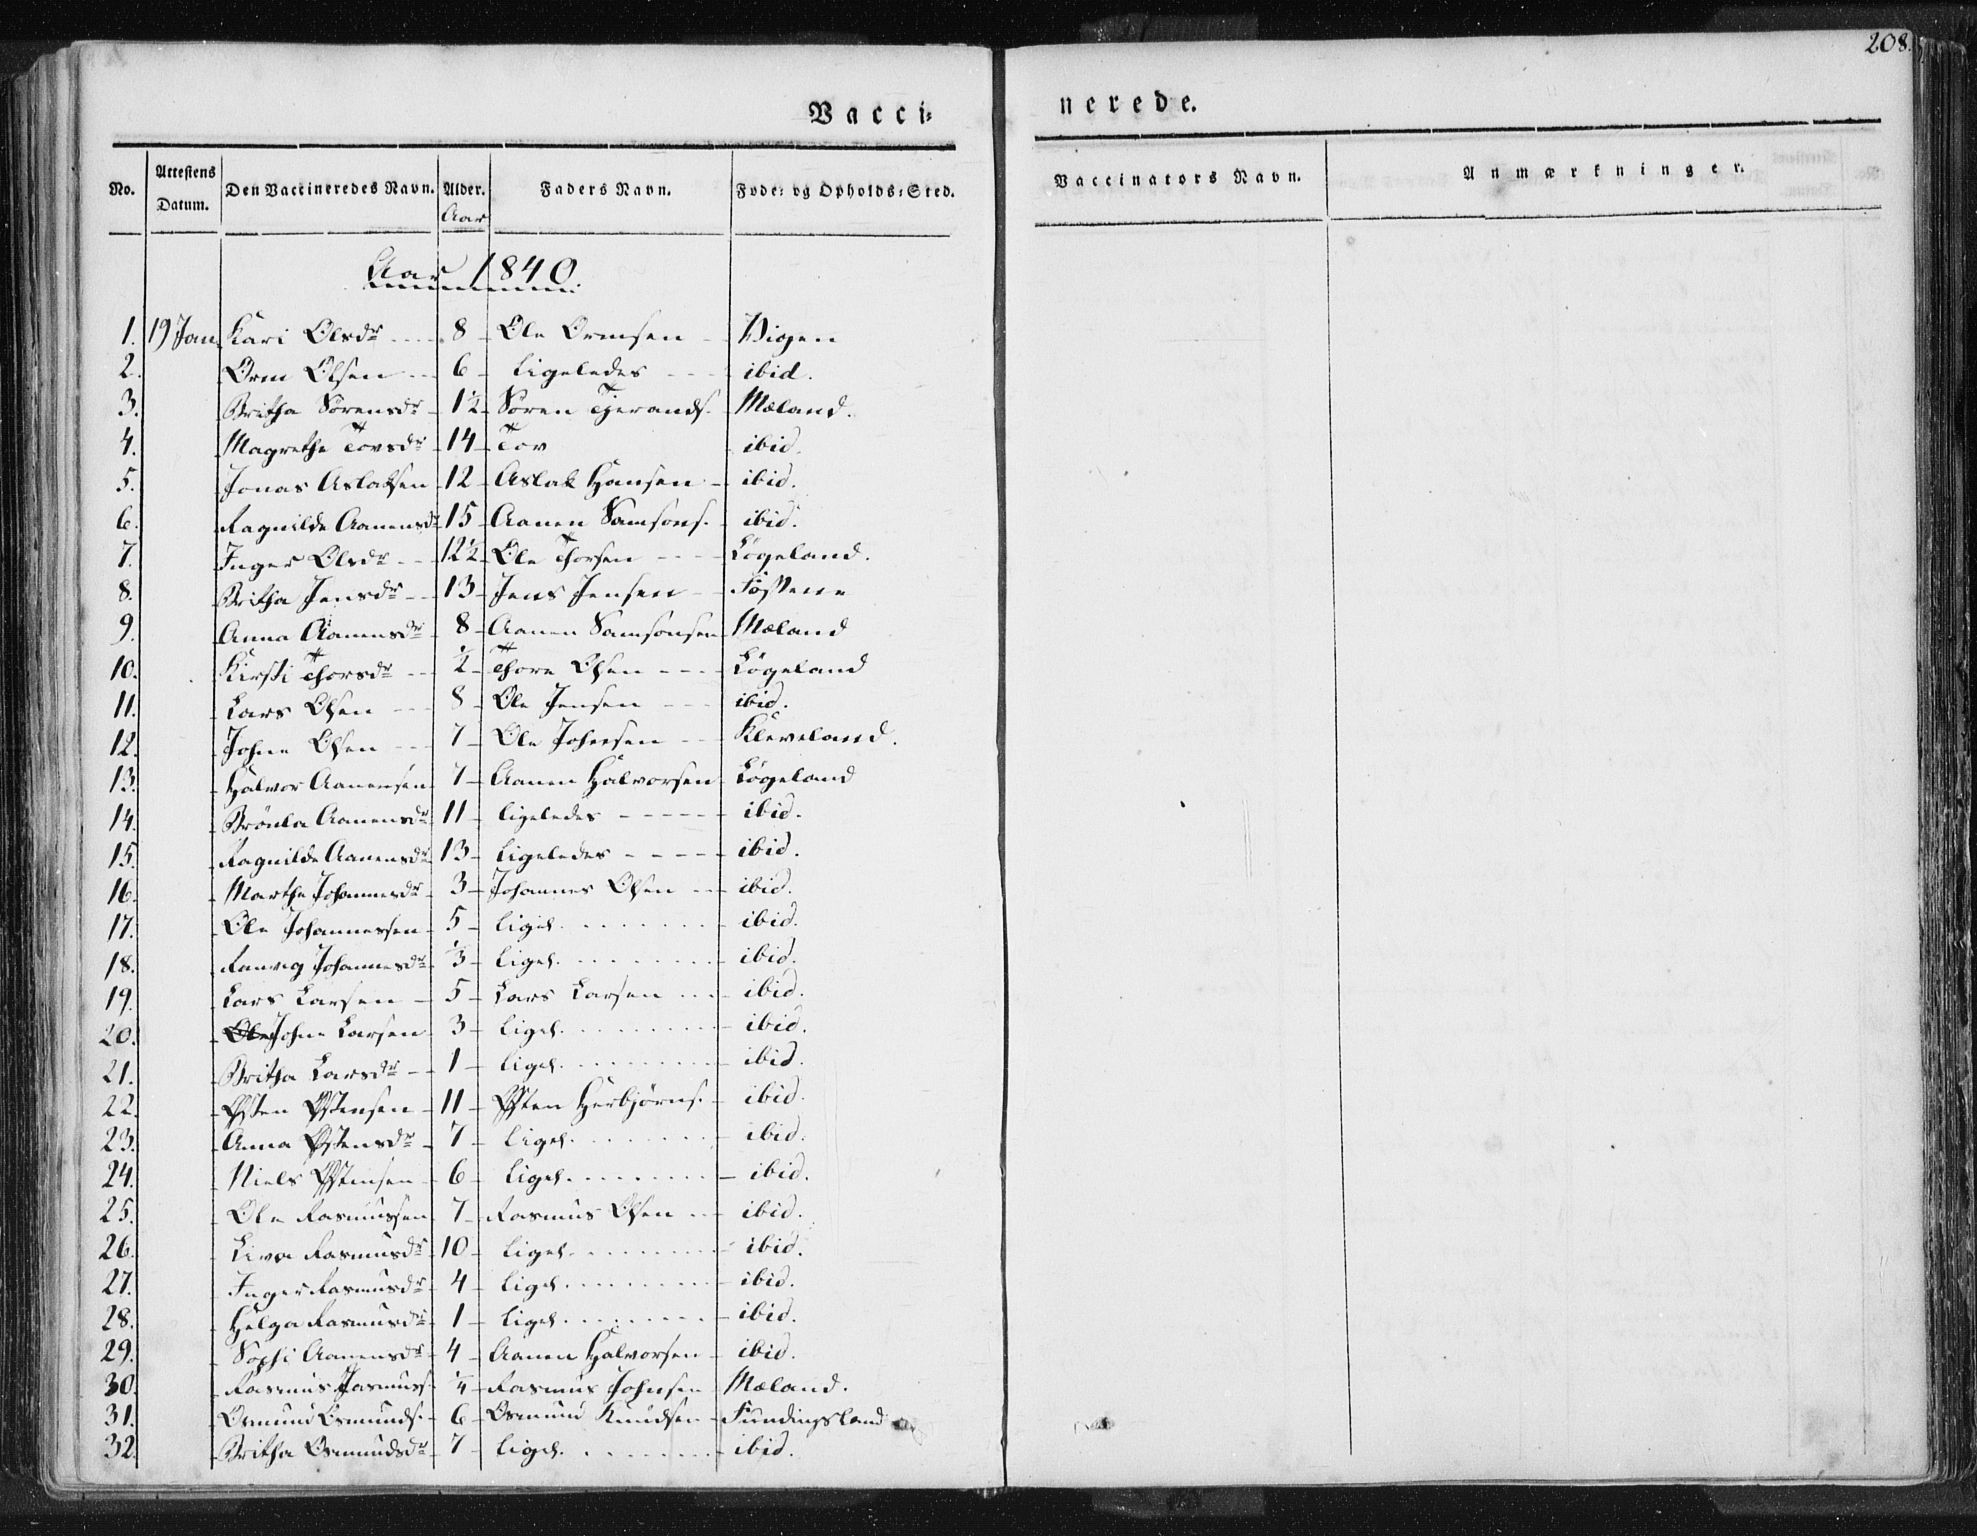 208.
Vacci- nerede.
No. Attestens Datum. Den Vaccineredes Navn. Alder. Aar Faders Navn. Føde- og Opholds-Sted. Vaccinators Navn. Anmærkninger.
Aar 1840.
1. 19 Jan Kari Olsdr 8 Ole Ormsen Vigen
2. Orm Olsen 6 Ligeledes ibid.
3. Britha Sørensdr 1½ Søren Tjerands. Mæland.
4. Magrethe Tovsdr 14 Tov ibid.
5. Jonas Aslaksen 12 Aslak Hansen ibid.
6. Ragnilde Aanensdr 15 Aanen Samsons. ibid.
7. Inger Olsdr 12½ Ole Thorsen Løgeland.
8. Britha Jensdr 13 Jens Jensen
9. Anna Aanensdr 8 Aanen Samsonsen Mæland
10. Kirsti Thorsdr ½ Thore Olsen Løgeland
11. Lars Olsen 8 Ole Jensen ibid.
12. Johne Olsen 7 Ole Johnsen Kleveland.
13. Halvor Aanensen 7 Aanen Halvorsen Løgeland
14. Aanensdr 11 ligeledes ibid.
15. Ragnilde Aanensdr 13 ligeledes ibid.
16. Marthe Johannesdr 3 Johannes Olsen ibid.
17. Ole Johannessen 5 ligel. ibid.
18. Ranveg Johannesdr ⅓ ligel. ibid.
19. Lars Larsen 5 Lars Larsen ibid.
20. Ole Johne Larsen 3 ligel. ibid.
21. Britha Larsdr 1 ligel. ibid.
22. Østen Østensen 11 Østen Herbjørns. ibid.
23. Anna Østensdr 7 ligel. ibid.
24. Niels Østensen 6 ligel. ibid.
25. Ole Rasmussen 7 Rasmus Olsen ibid.
26. Liva Rasmusdr 10 ligel. ibid.
27. Inger Rasmusdr 4 ligel. ibid.
28. Helga Rasmusdr 1 ligel. ibid.
29. Sophi Aanensdr 4 Aanen Halvorsen ibid.
30. Rasmus Rasmuss. ¼ Rasmus Johnsen Mæland.
31. Osmund Osmunds. 6 Osmund Knudsen Fundingsland
32. Britha Osmundsdr 7 ligel. ibid.